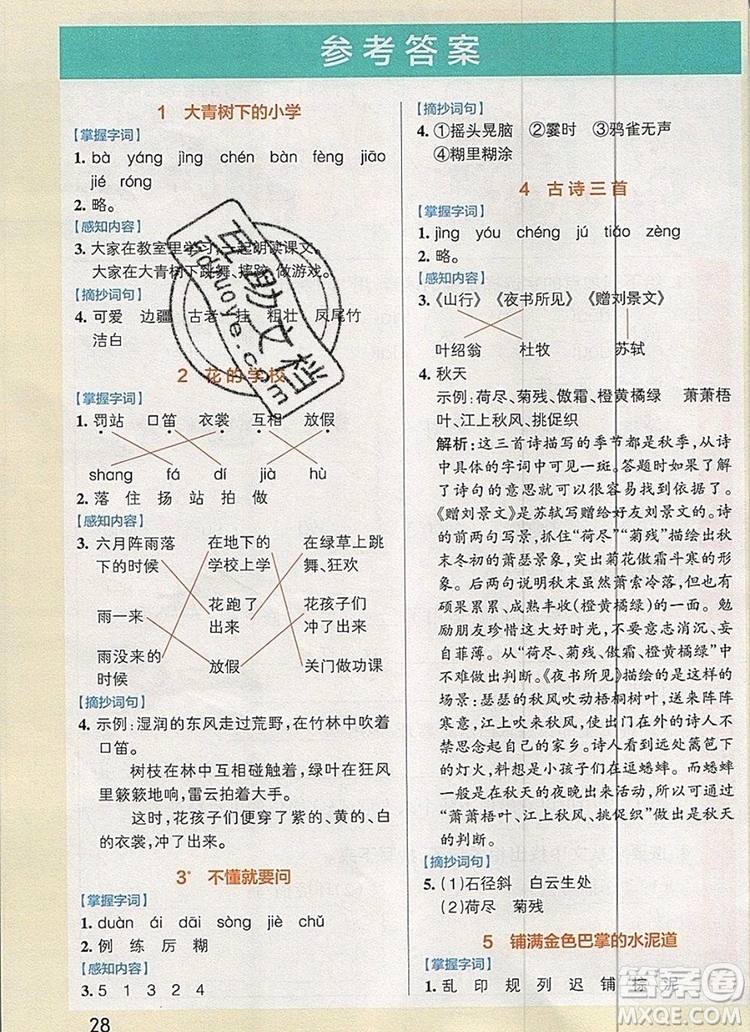 参考答案
1 大青树下的小学
【掌握字词】
1. bà yáng jìng chén bàn fèng jiāo
jié róng
2. 略。
【感知内容】
3. 大家在教室里学习,一起朗读课文。
大家在大青树下跳舞、摔跤、做游戏。
【摘抄词句】
4. 可爱 边疆 古老 挂 粗壮 凤尾竹
洁白
2 花的学校
【掌握字词】
1. 罚站 口笛 衣裳 互相 放假
shang fá dí jià hù
2. 落 住 扬 站 拍 做
【感知内容】
3. 六月阵雨落 在地下的 在绿草上跳
下的时候 学校上学 舞、狂欢
雨一来 花跑了 花孩子们
出来 冲了出来
雨没来的 放假 关门做功课
时候
【摘抄词句】
4. 示例:湿润的东风走过荒野,在竹林中吹着
口笛。
树枝在林中互相碰触着,绿叶在狂风
里簌簌地响,雷云拍着大手。
这时,花孩子们便穿了紫的、黄的、白
的衣裳,冲了出来。
3* 不懂就要问
【掌握字词】
1. duàn ái dāi sòng jiè chǔ
2. 例 练 厉 糊
【感知内容】
3. 5 1 3 2 4
28
【摘抄词句】
4. ①摇头晃脑 ②霎时 ③鸦雀无声
④糊里糊涂
4 古诗三首
【掌握字词】
1. jìng yóu chéng jú tiǎo zèng
2. 略。
【感知内容】
3. 《山行》 《夜书所见》 《赠刘景文》
叶绍翁 杜牧 苏轼
4. 秋天
示例:荷尽、菊残、傲霜、橙黄橘绿 萧萧梧
叶、江上秋风、挑促织
解析:这三首诗描写的季节都是秋季,从诗
中具体的字词中可见一斑。答题时我们了
解了诗句的意思就可以很快找到答案了。
《赠刘景文》是苏轼写赠给好友刘景文的。诗
的前两句写景,抓住“荷尽”“菊残”描绘出秋
末冬初的萧瑟景象,突出菊花傲霜斗寒的形
象。后两句说明秋末虽然萧索冷落,但也有
硕果累累、成熟丰收的(橙黄橘绿)一面,勉
励朋友珍惜这大好时光,不要意志消沉、妄
自菲薄。从“荷尽、菊残、傲霜、橙黄橘绿”中
不难做出判断。《夜书所见》描绘的是这样的
场景:瑟瑟的秋风吹动梧桐树叶,送来阵阵
寒意,江上吹来秋风,使出门在外的诗人不
禁思念起自己的家乡。诗人看见远处篱笆下
的灯火,料想是小孩子们在逗蟋蟀。而蟋蟀
一般是在秋天的夜晚出来活动,所以我们可从
“萧萧梧叶、江上秋风、挑促织”做出是秋天
的判断。
【摘抄词句】
5. (1)石径斜 白云生处
(2)荷尽 菊残
5 铺满金色巴掌的水泥道
【掌握字词】
1. 乱 印 规 列 迟 铺 棕 泥
互助文档
hdouoye.com
答案圈
MXQE.COM